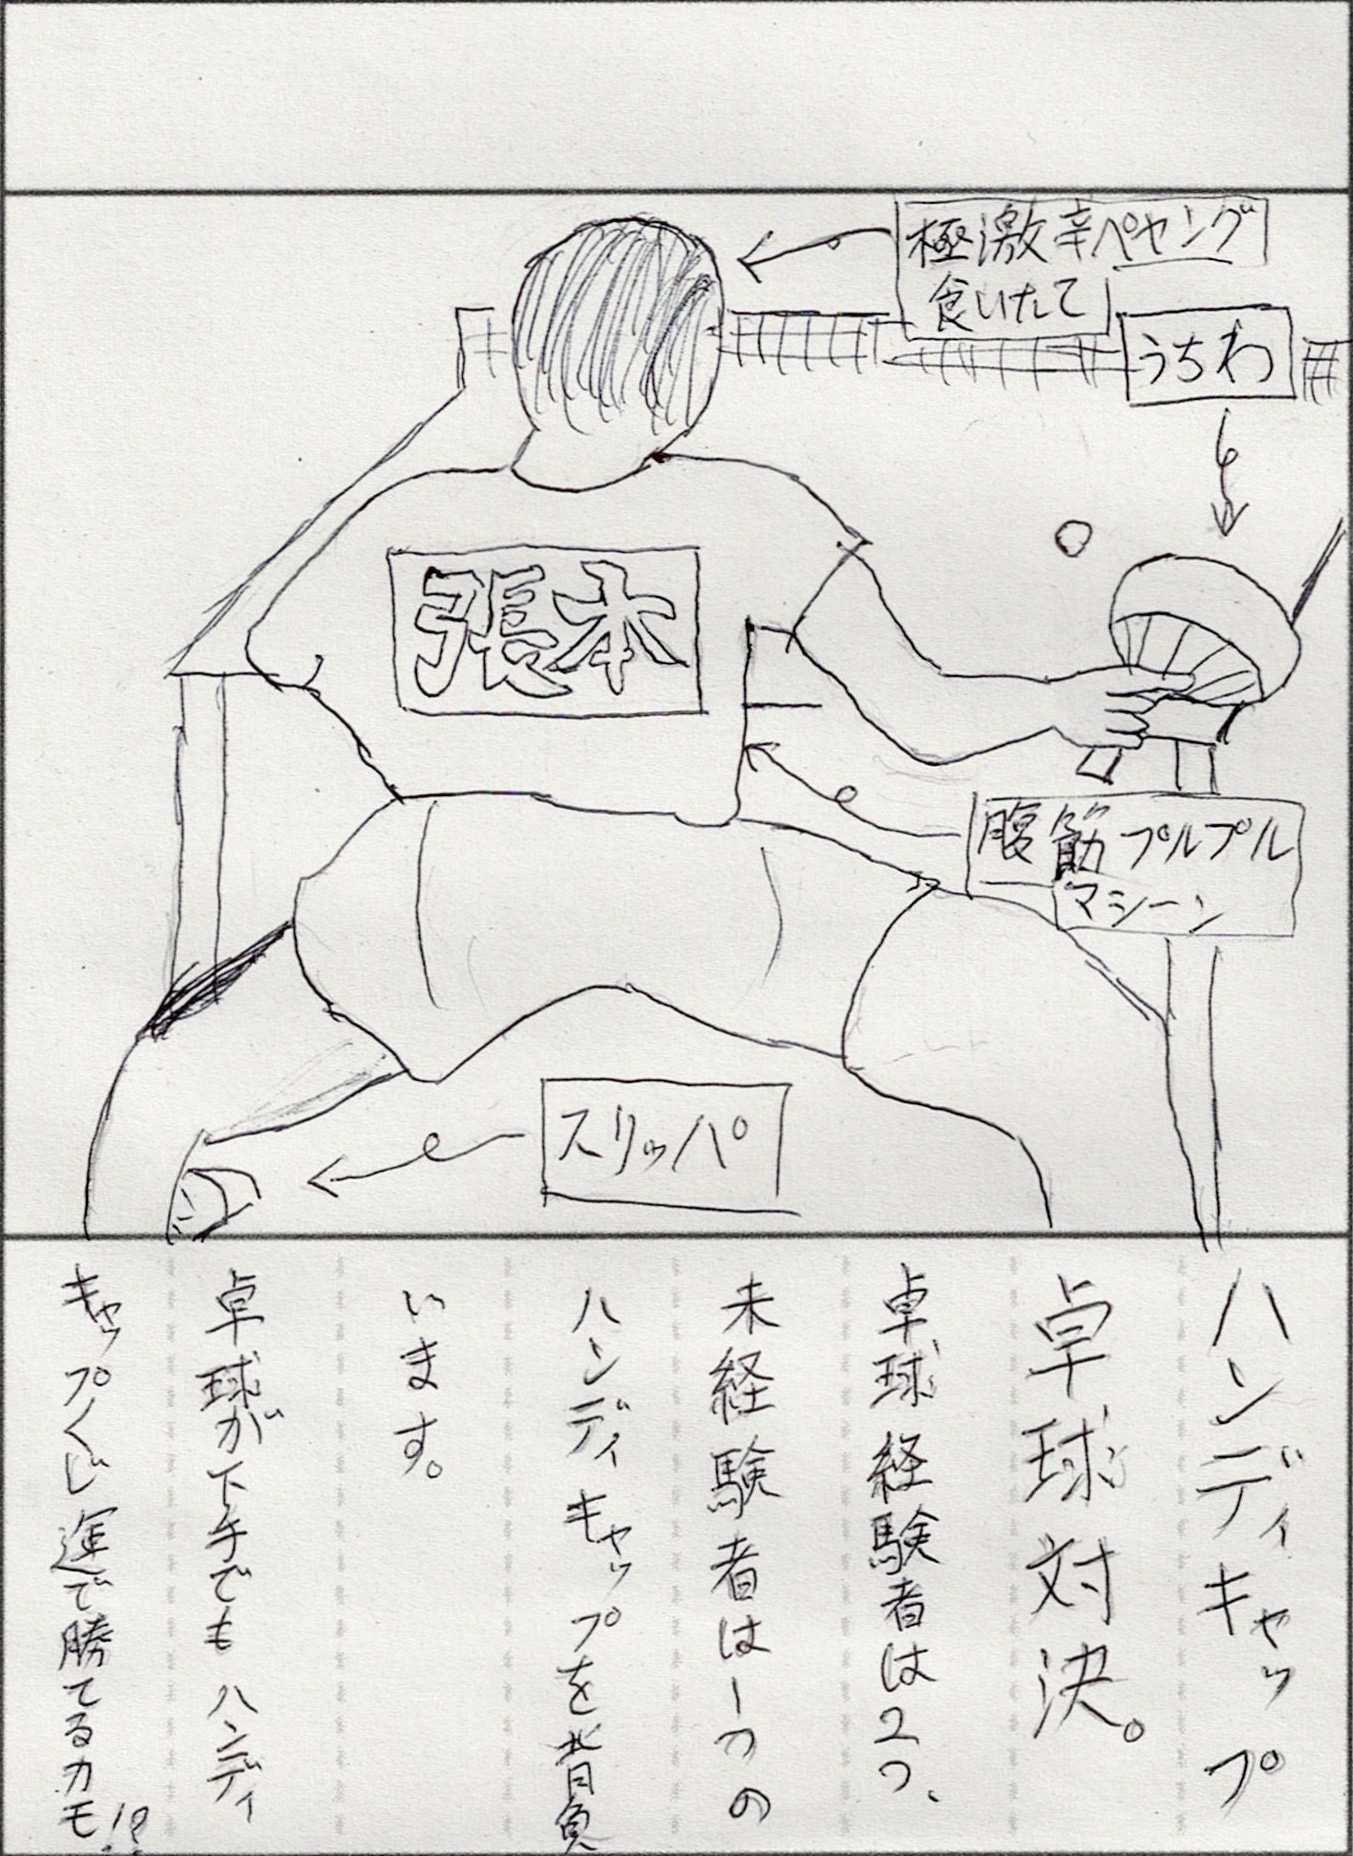 極激辛ペヤング
食いたて
うちわ
張本
腹筋プルプル
マシーン
スリッパ
ハンディキャップ
卓球対決。
卓球経験者は2つ、
未経験者は1つの
ハンディキャップを背負
います。
卓球が下手でもハンディ
キャップくじ運で勝てるカモ!?